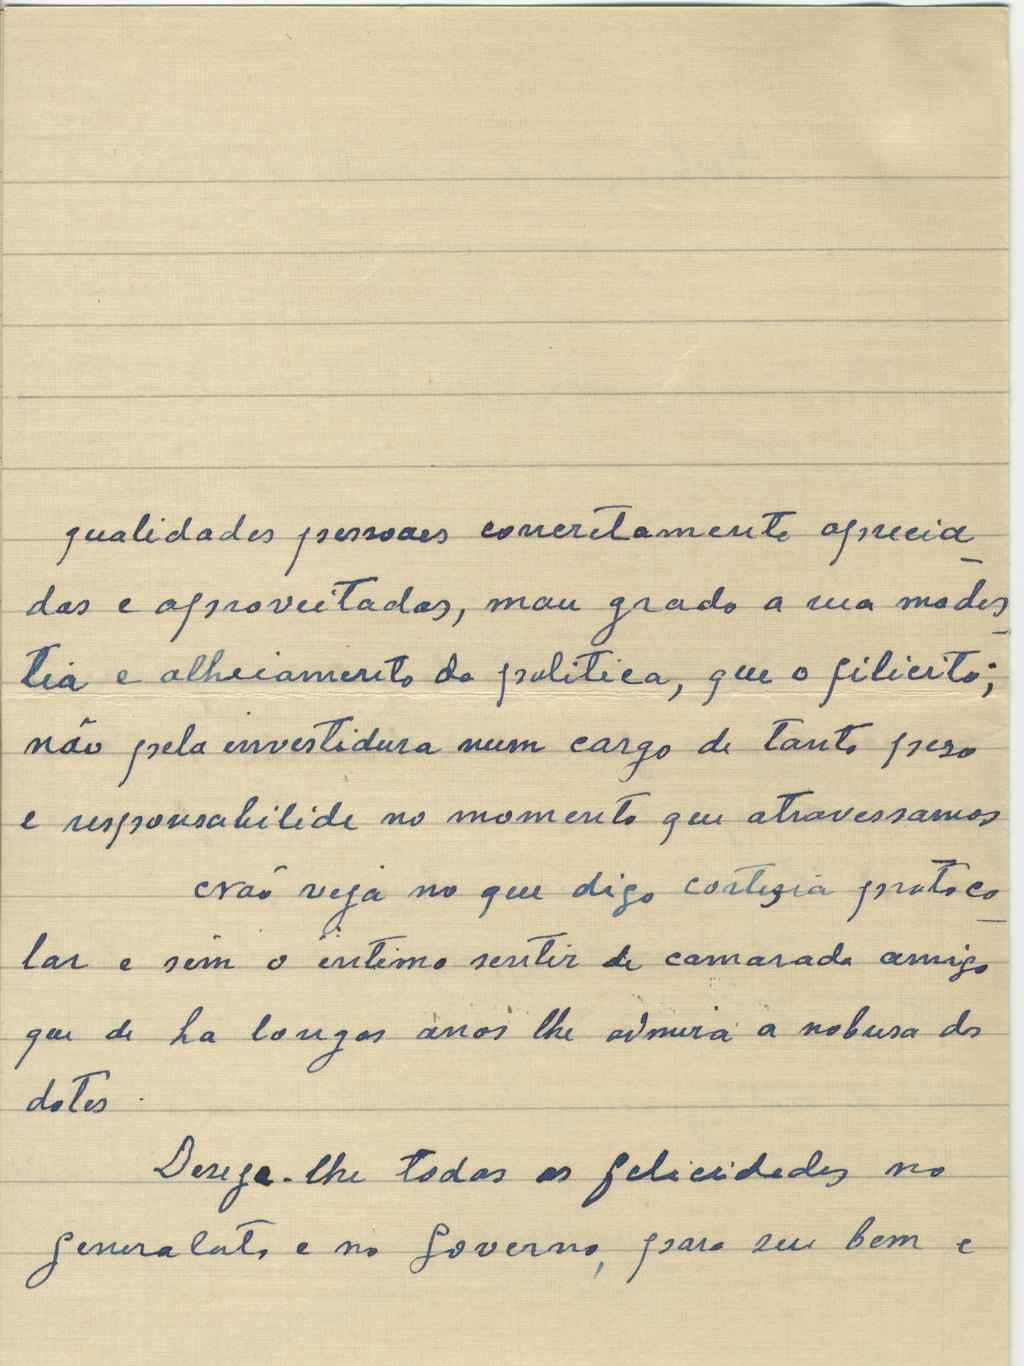 qualidades pessoaes concretamente aprecia_
das e aproveitadas, mau grado a sua modes_
tia e alheiamento da politica, que o filicito;
não pela investidura num cargo de tanto peso
e responsabilide no momento que atravessamos
Não veja no que digo cortezia protoco_
lar e sem o intimo sentir de camarada amigo
que de ha longos anos lhe admira a nobresa dos
dotes.
Deseja-lhe todas as felicidades no
generalato e no Governo, para seu bem e